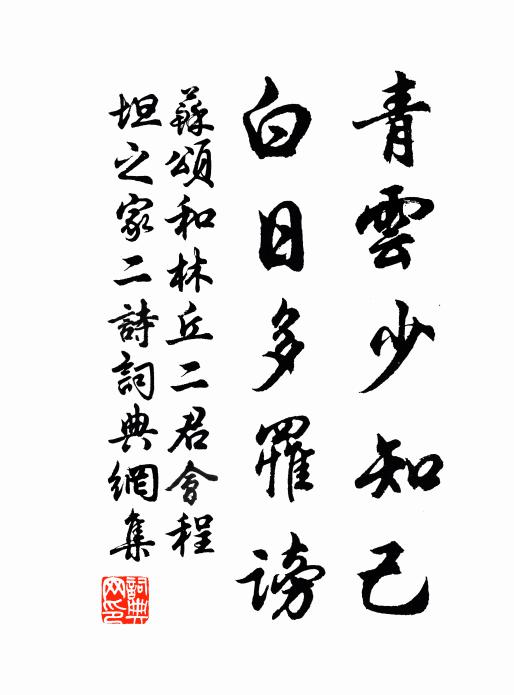 青雲少知己
白日多罹謗
蘇頌和林丘二君會程
坦之家二詩詞典網集
詞典
网印